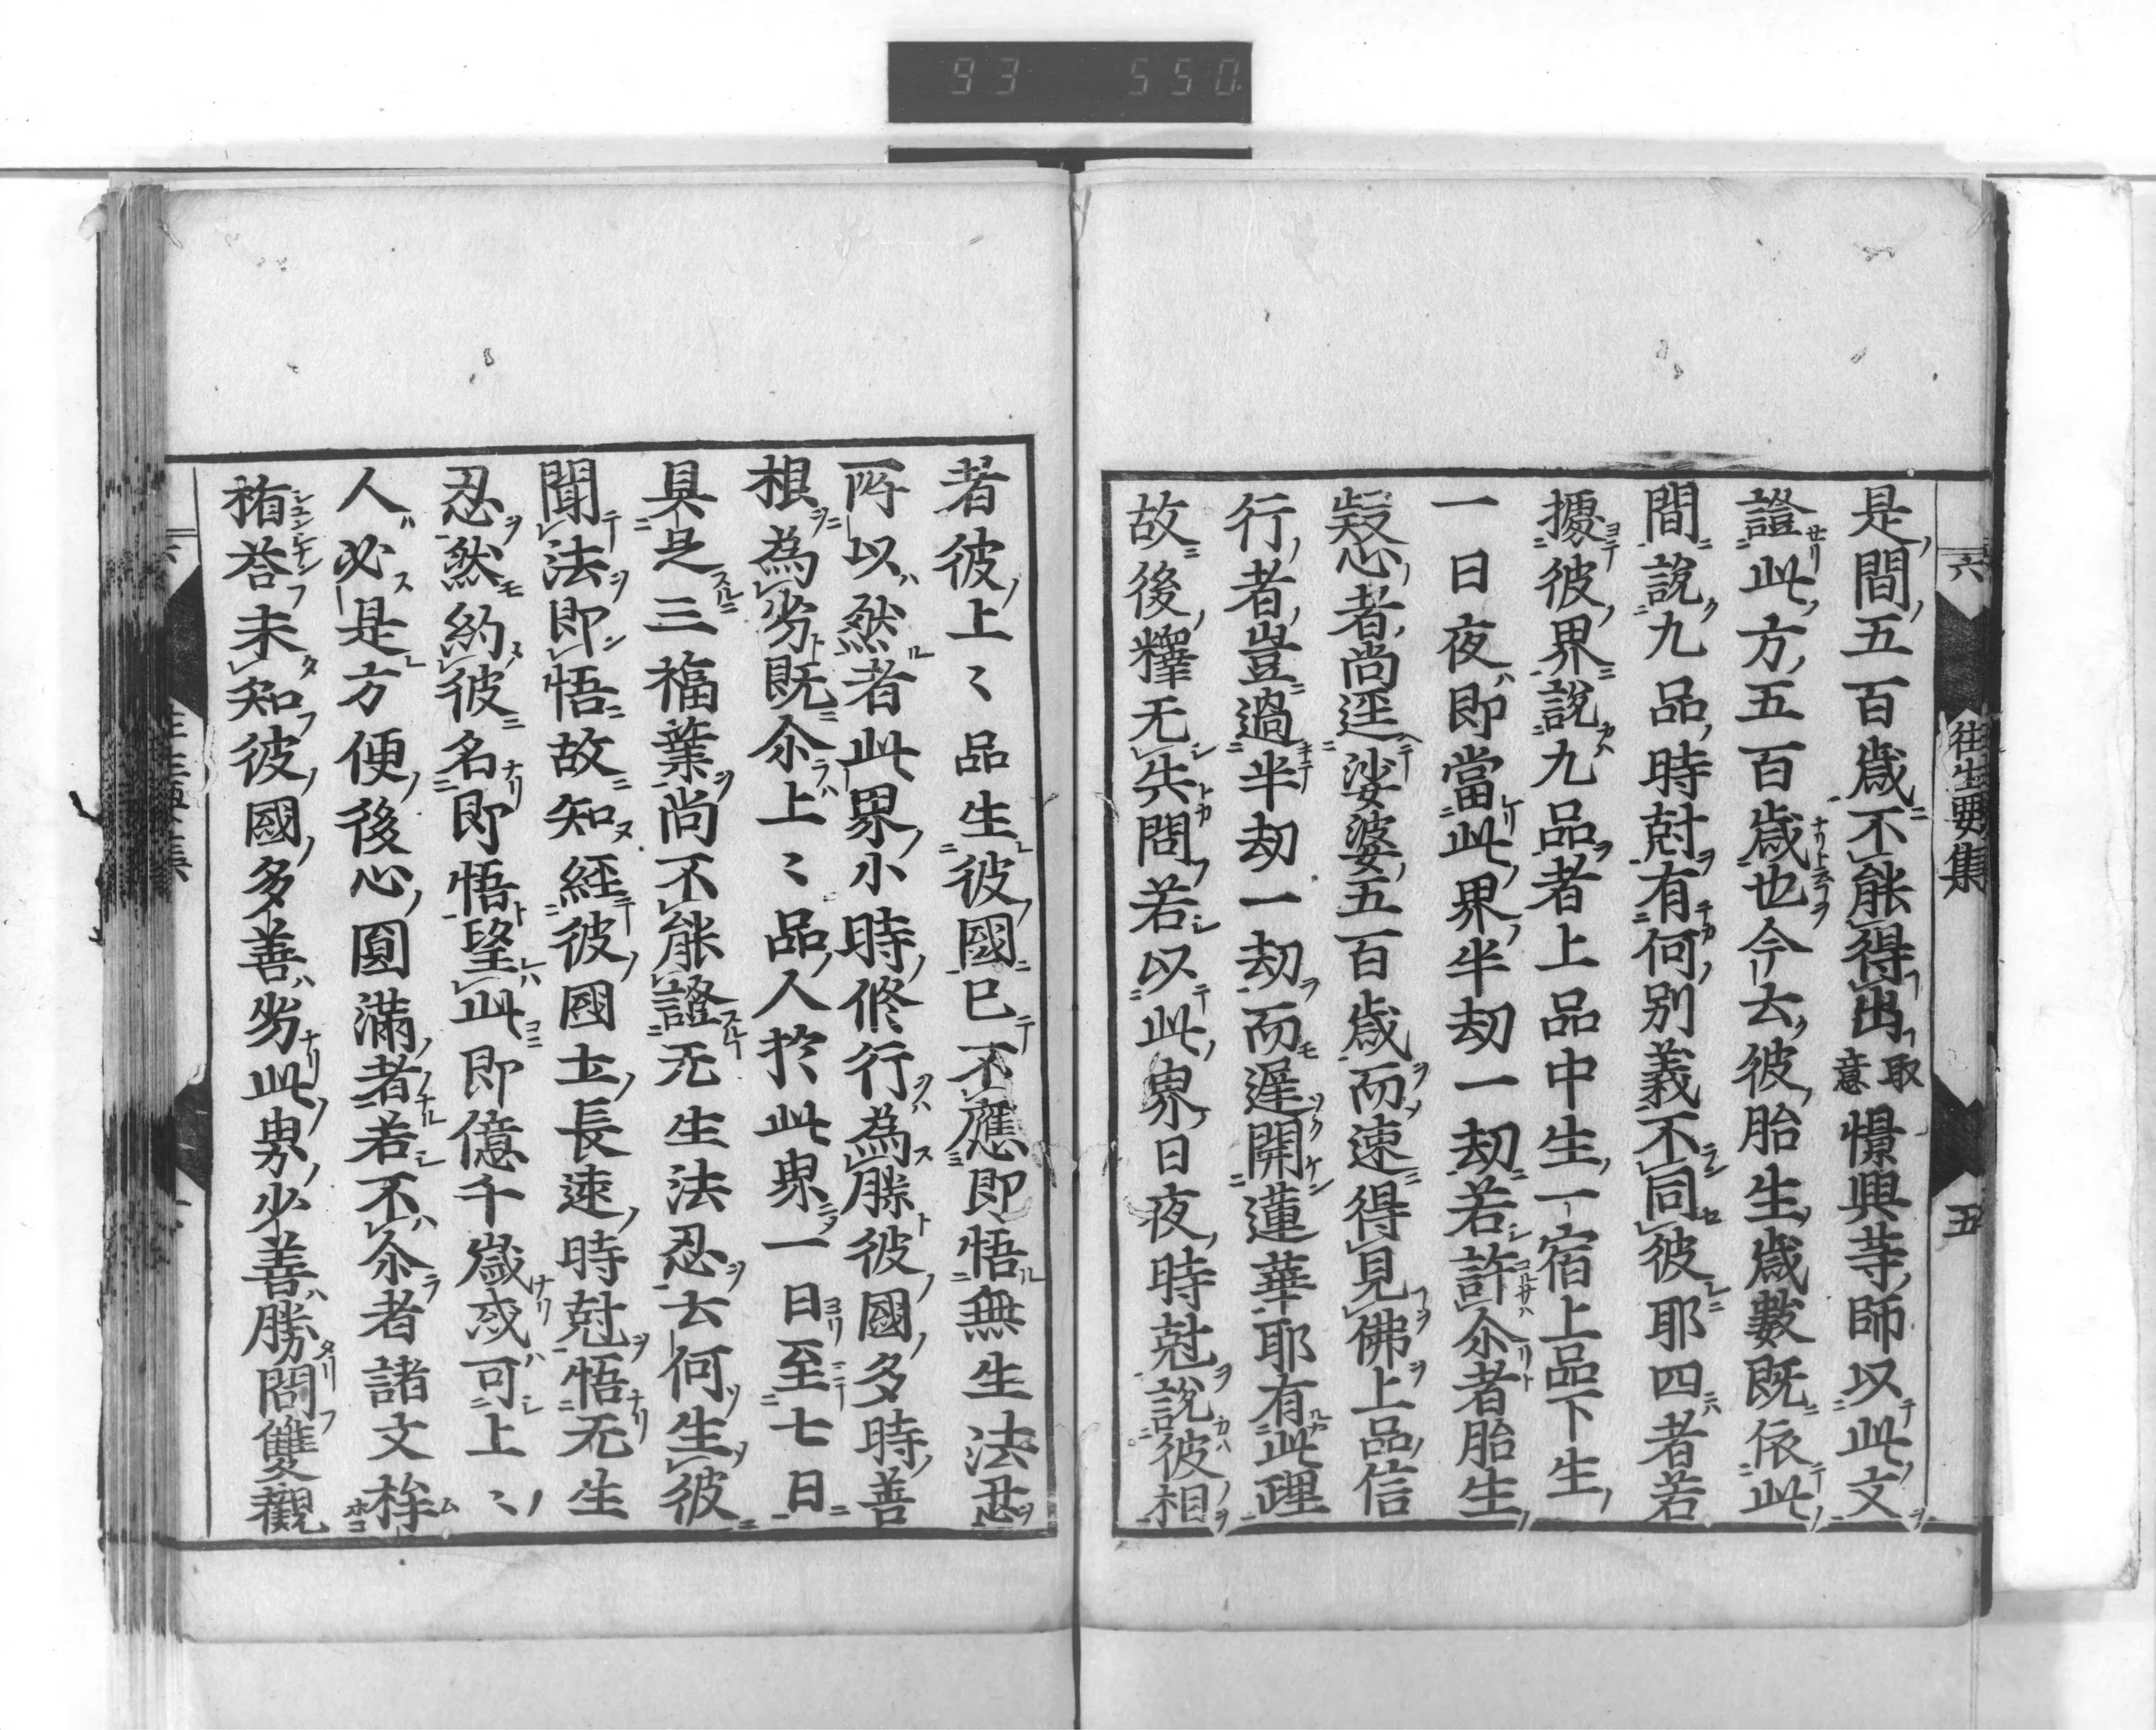 93 550
六 往生要集 五
是間五百歲不能得出取意憬興等師以此文
證此方五百歲也今云彼胎生歲數既依此
間說九品時尅有何別義不同彼耶四者若
據彼界說九品者上品中生一宿上品下生
一日夜即當此界半劫一劫若許尒者胎生
疑心者尚逕娑婆五百歲而速得見佛上品信
行者豈過半劫一劫而遲開蓮華耶有此理
故後釋无失問若以此界日夜時尅說彼相
者彼上〻品生彼國已不應即悟無生法忍
所以然者此界小時修行為勝彼國多時善
根為劣既尒上〻品人於此界一日至七日
具足三福業尚不能證无生法忍云何生彼
聞法即悟故知經彼國土長遠時尅悟无生
忍然約彼名即悟望此即億千歲或可上〻
人必是方便後心圓滿者若不尒者諸文桙
楯荅未知彼國多善劣此界少善勝問雙觀